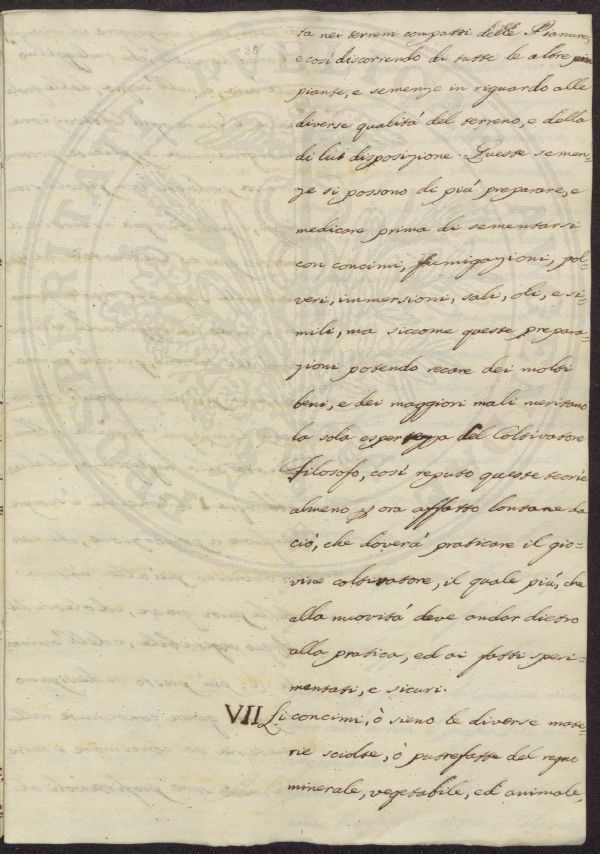 26
ta nei terreni compatti delle Pianure,
e così discorrendo di tutte le altre
piante, e semenze in riguardo alle
diverse qualitá del terreno, e della
di lui disposizione. Queste semen-
ze si possono di piú preparare, e
medicare prima di sementarsi
con concimi, fumigazioni, pol-
veri, immersioni, sali, oli, e si-
mili, ma siccome queste prepara-
zioni potendo recare dei molti
beni, e dei maggiori mali meritano
la sola espertezza del Coltivatore
filosofo, così reputo queste teorie
almeno p ora affatto lontane da
ció, che doverá praticare il gio-
vine coltivatore, il quale piú, che
alla nuovitá deve andar dietro
alla pratica, ed ai fatti speri-
mentati, e sicuri.
VII Li concimi, ò sieno le diverse mate-
rie sciolte, ò putrefatte del regno
minerale, vegetabile, ed animale,